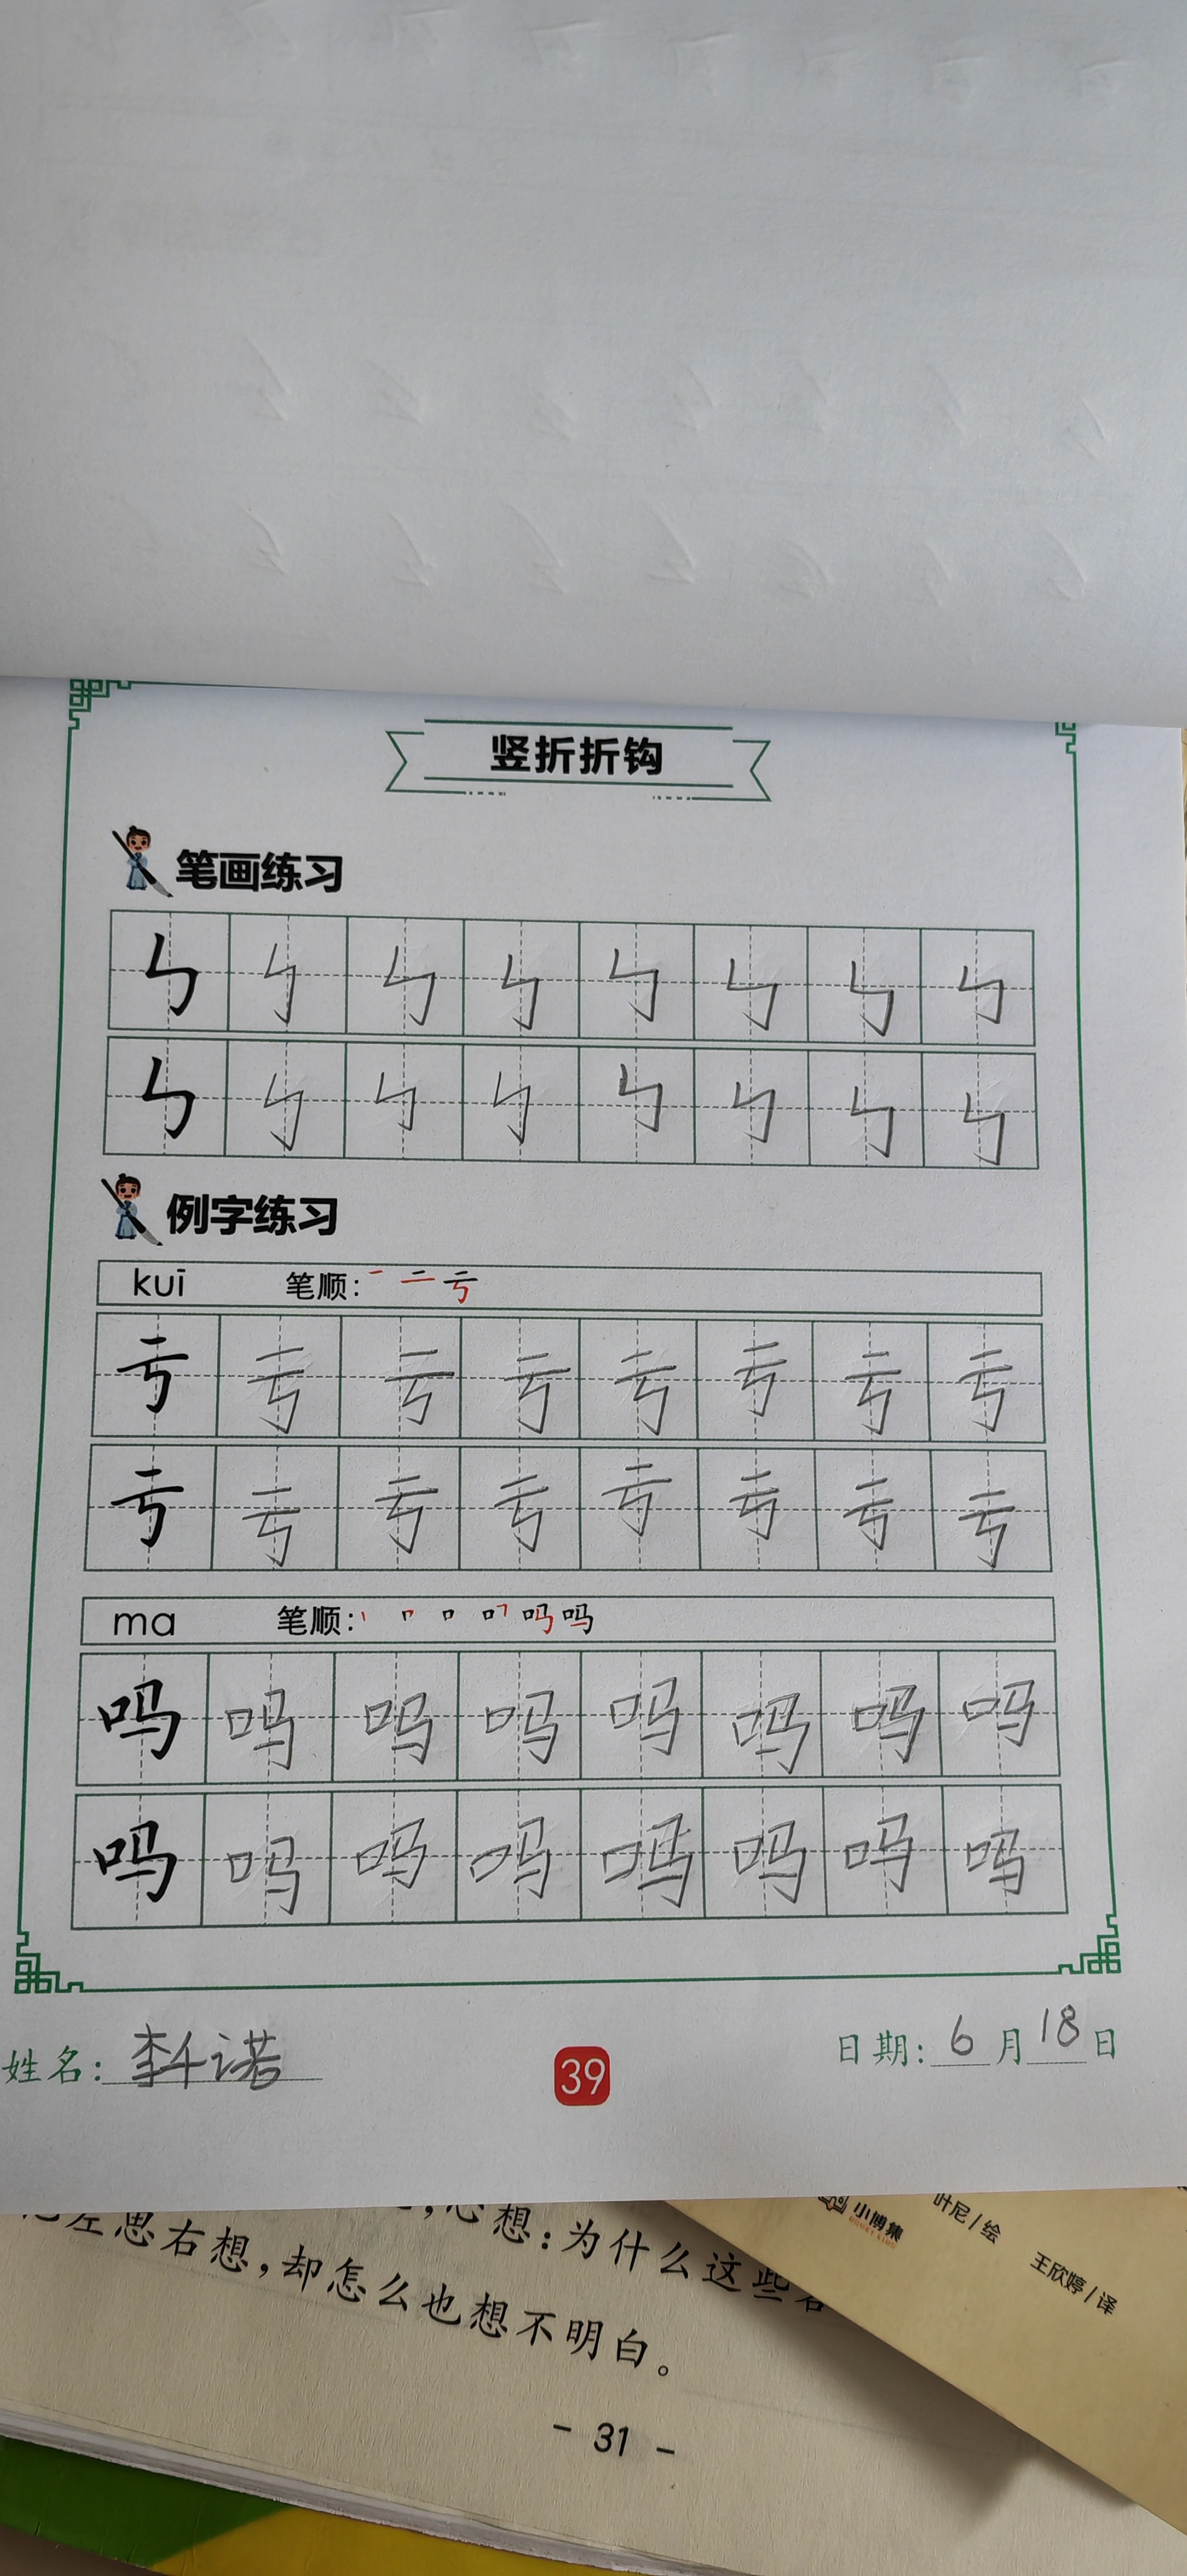 竖折折钩
笔画练习
ㄣ ㄣ ㄣ ㄣ ㄣ ㄣ ㄣ ㄣ
ㄣ ㄣ ㄣ ㄣ ㄣ ㄣ ㄣ ㄣ
例字练习
kuī 笔顺: 一 二 亏
亏 亏 亏 亏 亏 亏 亏 亏
亏 亏 亏 亏 亏 亏 亏 亏
ma 笔顺: 丨 冂 口 叮 吗 吗
吗 吗 吗 吗 吗 吗 吗 吗
吗 吗 吗 吗 吗 吗 吗 吗
姓名: 李千诺
39
日期: 6 月 18 日
，心想：为什么这些
左思右想，却怎么也想不明白。
- 31 -
小博集
叶尼/绘
王欣婷/译